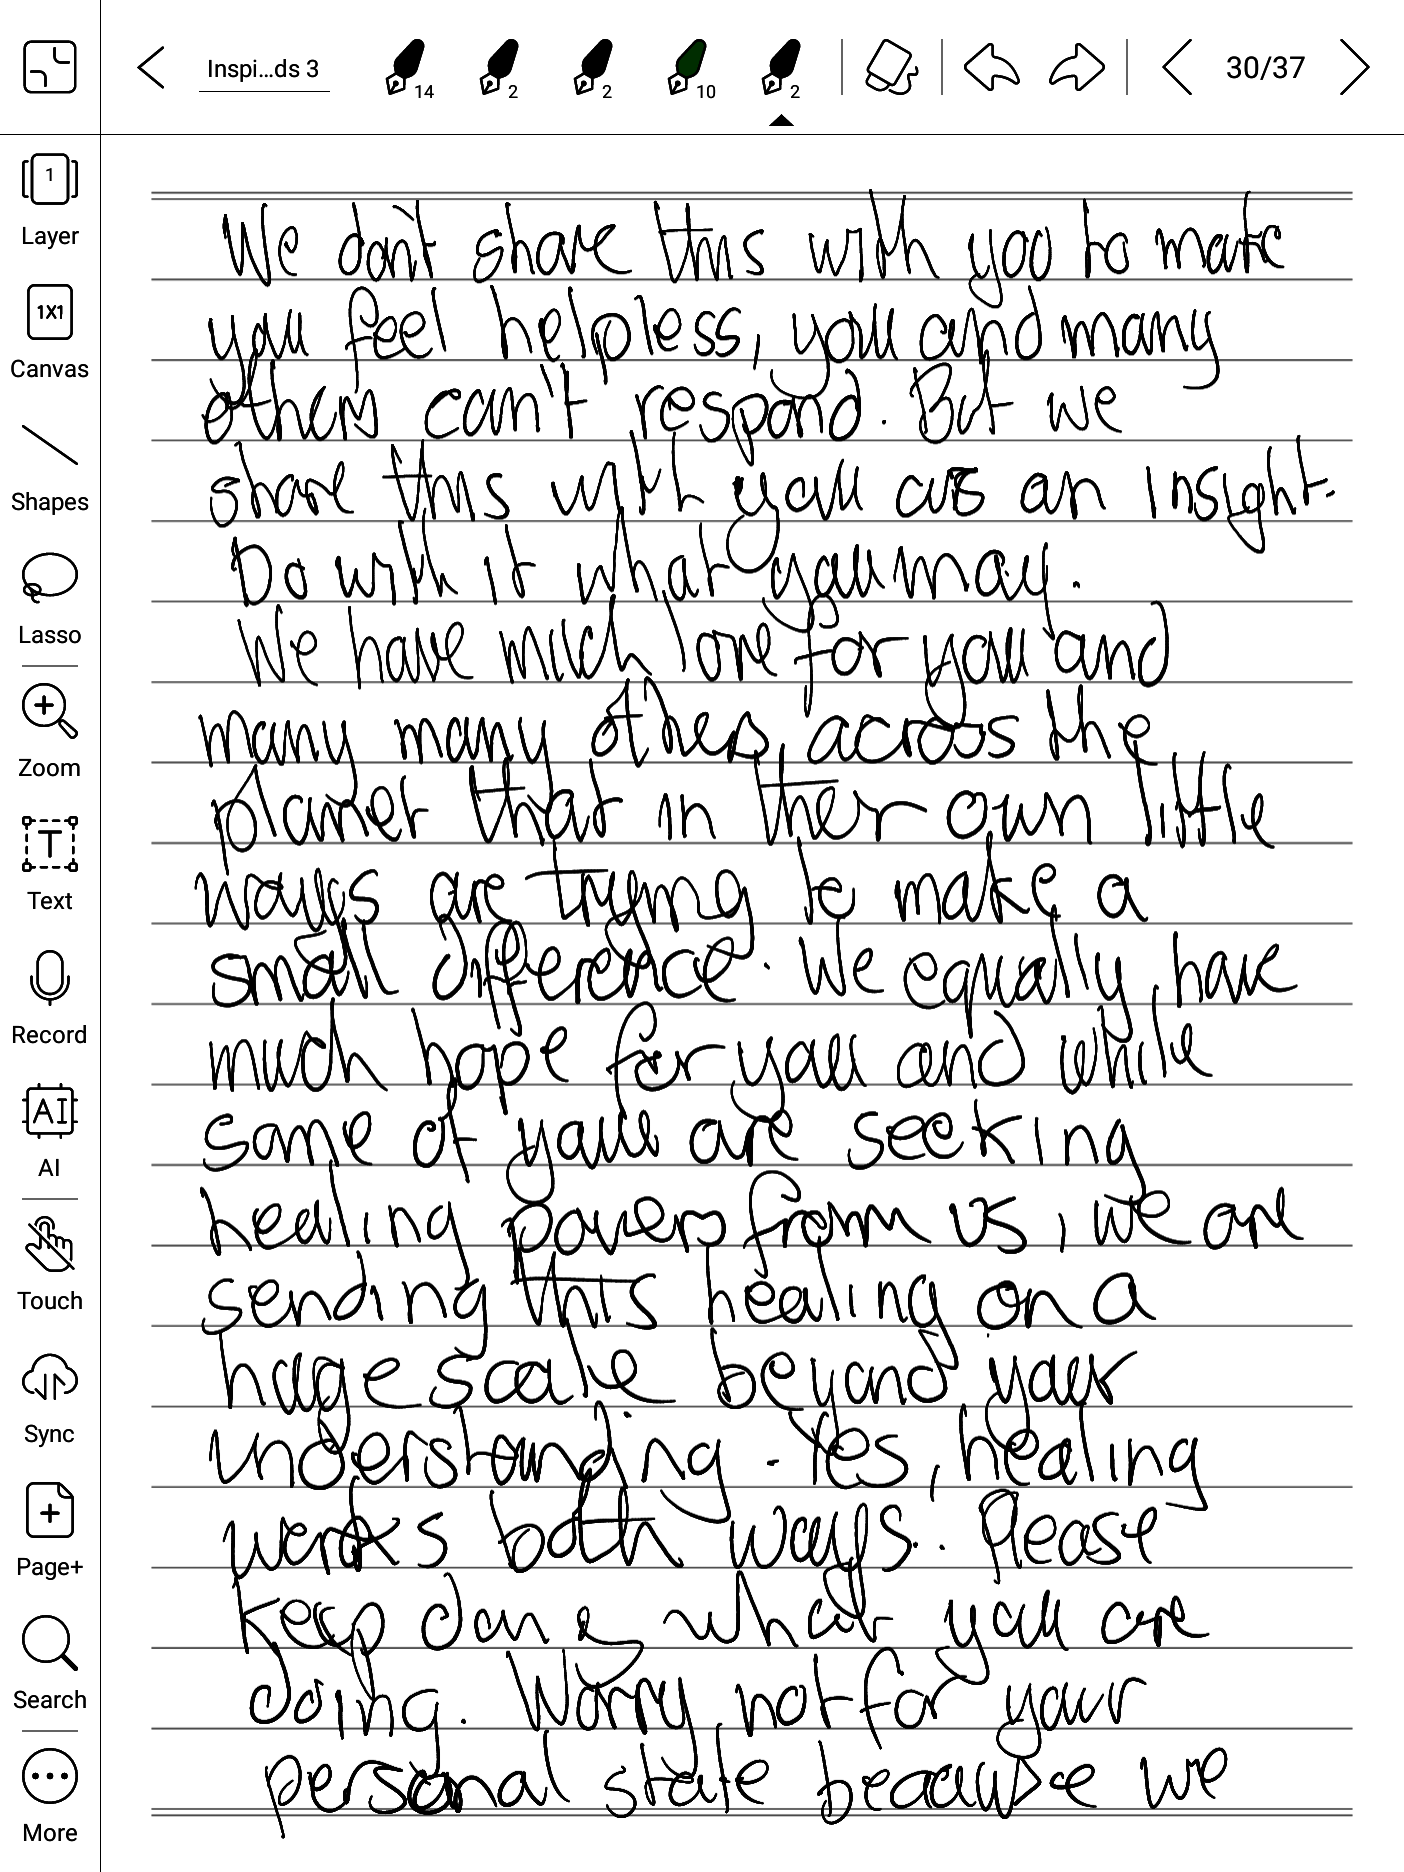 Inspi...ds 3
14
2
2
10
2
30/37
1
Layer
1X1
Canvas
Shapes
Lasso
Zoom
T
Text
Record
AI
AI
Touch
Sync
Page+
Search
More
We don't share this with you to make
you feel helpless, you and many
others can't respond. But we
share this with you as an insight.
Do with it what you may.
We have much love for you and
many many others, across the
planet that in their own little
ways are trying to make a
small difference. We equally, have
much hope for you and while
some of you are seeking
healing powers from us, we are
sending this healing on a
huge scale beyond your
understanding. Yes, healing
works both ways. Please
keep doing what you are
doing. Worry not for your
personal state because we